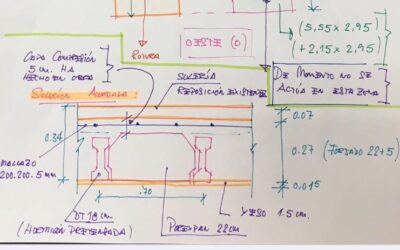 (5,55 x 2,95)
+ 2,15 x 2,95)
OESTE (O)
ROTURA
CAPA COMPRESIÓN
5 cm. HA
HECHO EN OBRA
DE MOMENTO NO SE
ACTÚA EN ESTA ZONA
SOLERÍA
REPOSICIÓN EXISTENTE
Solución Acordada:
0.34
0.07
0.27 (FORJADO 22+5)
0.015
MALLAZO
200.200.5 mm
.70
DT 18 cm.
(HORMIGÓN PRETENSADA)
POREXPAN 22 cm
YESO 1.5 cm.